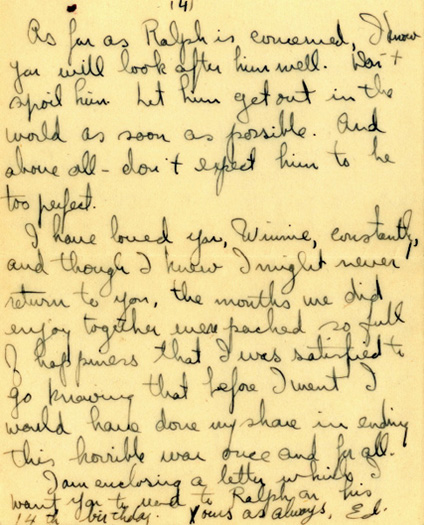 (4)
As far as Ralph is concerned, I know
you will look after him well. Don't
spoil him. Let him get out in the
world as soon as possible. And
above all - don't expect him to be
too perfect.
I have loved you, Winnie, constantly,
and though I knew I might never
return to you, the months we did
enjoy together were packed so full
of happiness that I was satisfied to
go knowing that before I went I
would have done my share in ending
this horrible war once and for all.
I am enclosing a letter which I
want you to send to Ralph on his
14th birthday. Yours as always, Ed.